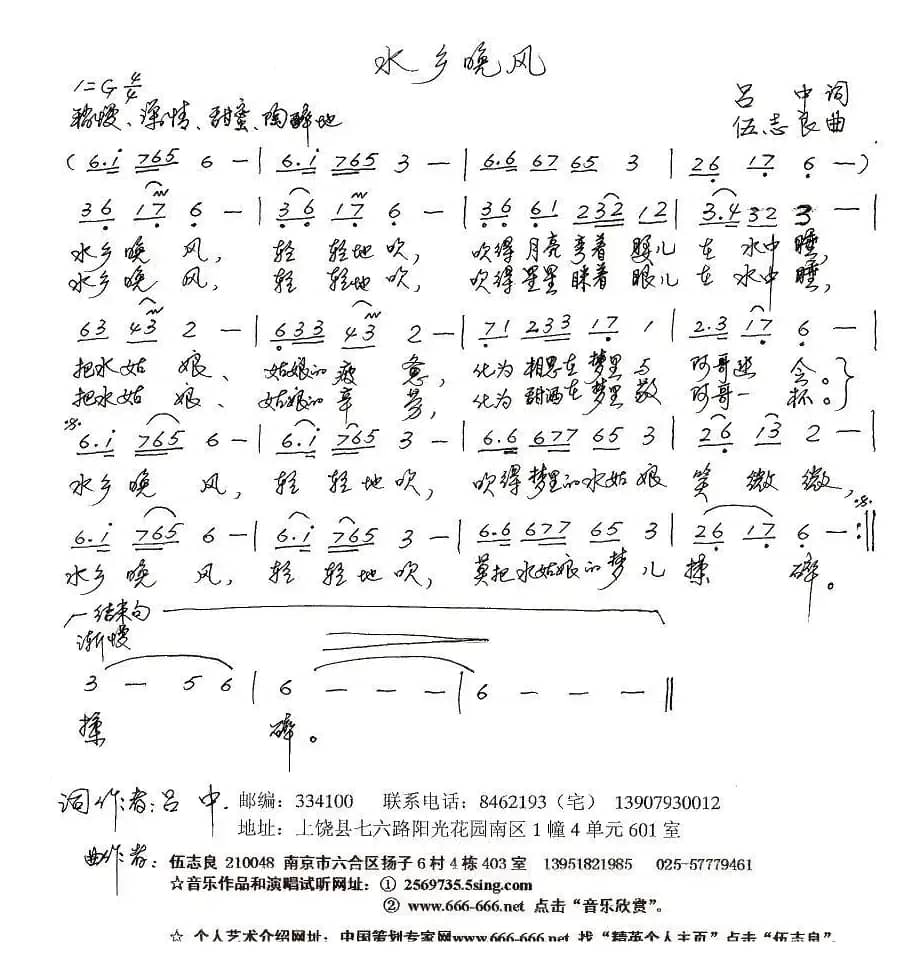 水乡晚风
1=G 4/4
稍慢、深情、甜蜜、陶醉地
吕 中 词
伍志良 曲
( 6.i 765 6 - | 6.i 765 3 - | 6.6 67 65 3 | 26 17 6 - )
36 17 6 - | 36 17 6 - | 36 61 232 12 | 3.4 32 3 - |
水乡晚 风， 轻 轻地吹， 吹得月亮弯着 腰儿 在 水中 睡，
水乡晚 风， 轻 轻地吹， 吹得星星眯着 眼儿 在 水中 睡，
63 43 2 - | 633 43 2 - | 71 233 17 1 | 2.3 17 6 - |
把水姑 娘、 姑娘的疲 惫， 化为相思在梦里与 阿哥 会。
把水姑 娘、 姑娘的辛 劳， 化为甜酒在梦里敬 阿哥一 杯。
6.i 765 6 - | 6.i 765 3 - | 6.6 677 65 3 | 26 13 2 - |
水乡晚 风， 轻 轻地吹， 吹得梦里的水姑娘 笑 微 微，
6.i 765 6 - | 6.i 765 3 - | 6.6 677 65 3 | 26 17 6 - :||
水乡晚 风， 轻 轻地吹， 莫把水姑娘的梦儿 揉 碎。
结束句
渐慢
3 - 5 6 | 6 - - - | 6 - - - ||
揉 碎。
词作者：吕 中. 邮编：334100 联系电话：8462193（宅） 13907930012
地址：上饶县七六路阳光花园南区1幢4单元601室
曲作者：伍志良 210048 南京市六合区扬子6村4栋403室 13951821985 025-57779461
☆音乐作品和演唱试听网址：① 2569735.5sing.com
② www.666-666.net 点击“音乐欣赏”。
☆ 个人艺术介绍网址：中国策划专家网www.666-666.net 找“精英个人主页”点击“伍志良”。